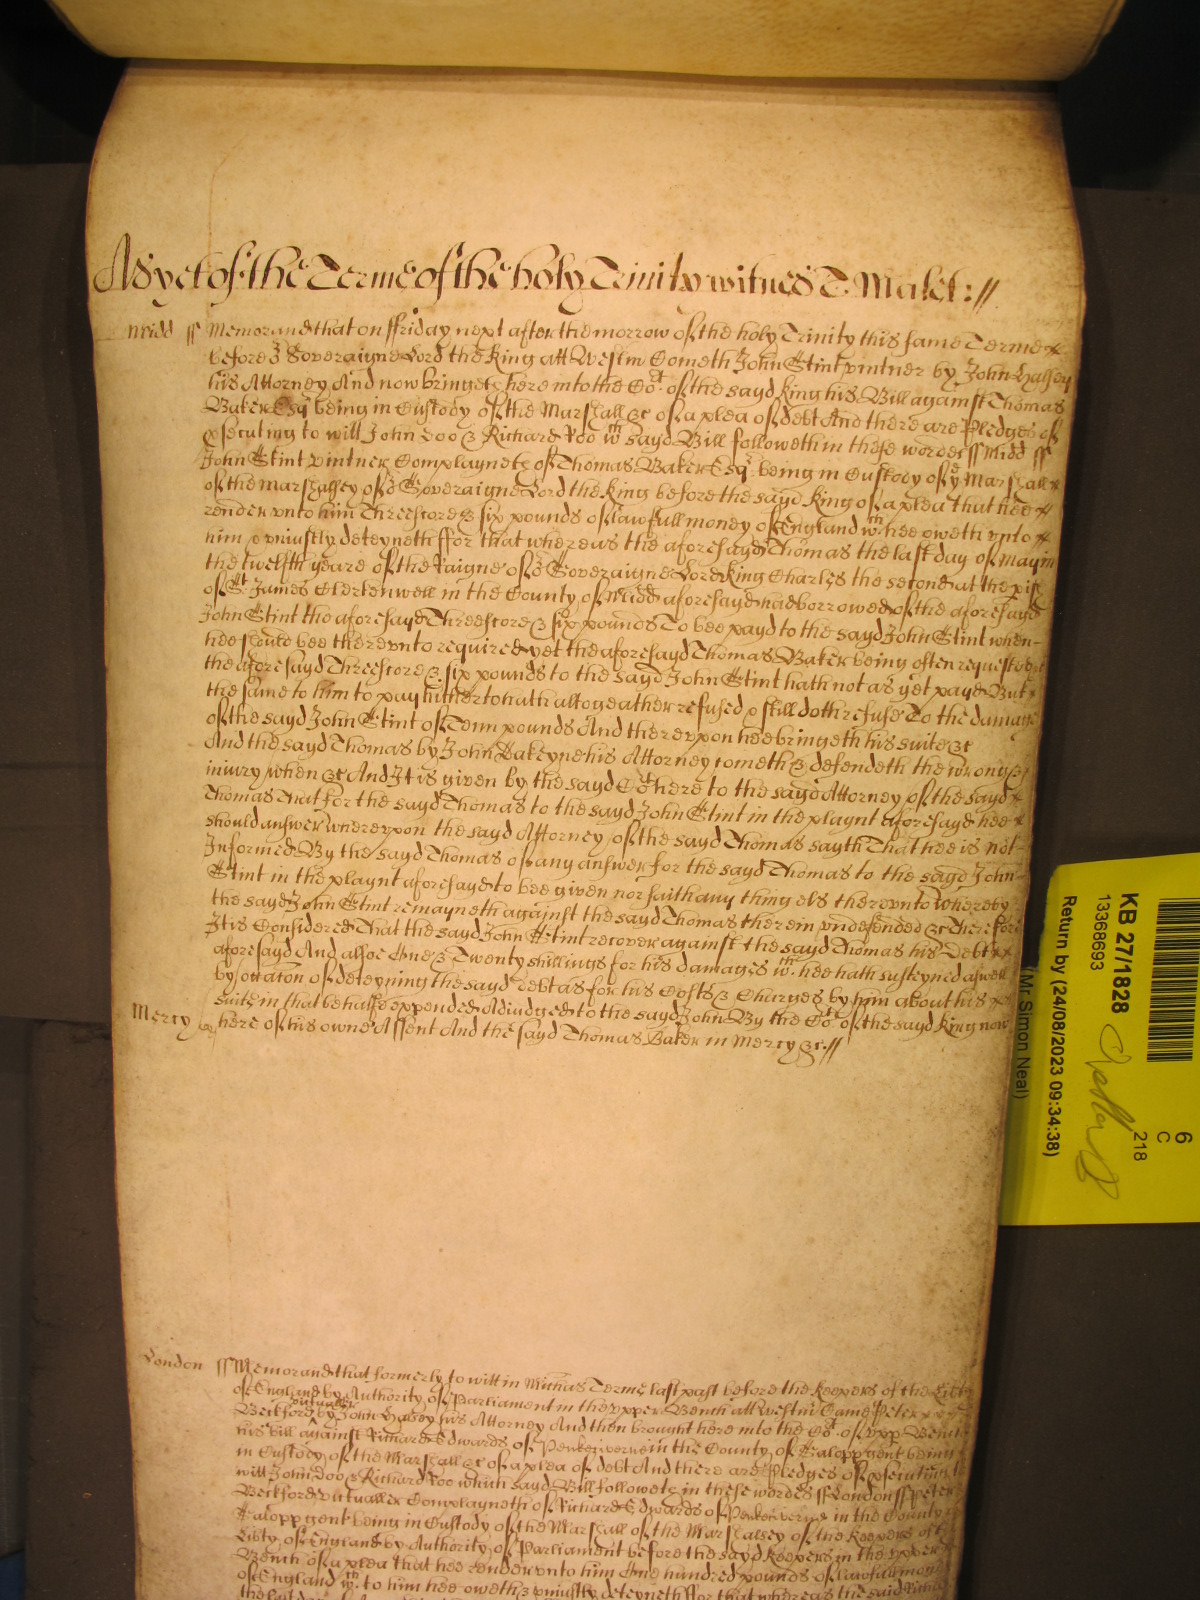 As yet of the Terme of the holy Trinity witnes T. Malet: //
Midd ss Memorand that on ffriday next after the morrow of the holy Trinity this same Terme
before ō Soveraigne Lord the King att Westm̄ Cometh John Stint vintner by John Halsey
his Attorney And now bringeth here into the Cot. of the sayd King his Bill against Thomas
Baker Esqr being in Custody of the Marshall &c of a plea of debt And there are Pledges of
psecuting to witt John Doo & Richard Roo wch sayd Bill followeth in these wordes ss Midd ss
John Stint vintner Complayneth of Thomas Baker Esqr. being in Custody of ye Marshall
of the Marshalsey of ō Soveraigne Lord the King before the sayd King of a plea that hee
render vnto him Threescore & six pounds of lawfull money of England wch. hee oweth vnto
him & vniustly deteyneth ffor that whereas the aforesayd Thomas the last day of May in
the twelfth yeare of the Raigne of ō Soveraigne Lord King Charles the second at the pish
of St. James Clerkenwell in the County of Midd aforesayd had borrowed of the aforesayd
John Stint the aforesayd Threescore & six pounds To bee payd to the sayd John Stint when-
hee should bee therevnto required yet the aforesayd Thomas Baker being often requested
the aforesayd Threescore & six pounds to the sayd John Stint hath not as yet payd But
the same to him to pay hitherto hath altogeather refused & still doth refuse To the damage
of the sayd John Stint of Tenn pounds And therevpon hee bringeth his suite &c
And the sayd Thomas by John Dakeyne his Attorney cometh & defendeth the wrong &
iniury when &c And It is given by the sayd Cot here to the sayd Attorney of the sayd
Thomas That for the sayd Thomas to the sayd John Stint in the playnt aforesayd hee
should answer wherevpon the sayd Attorney of the sayd Thomas sayth That hee is not-
Informed By the sayd Thomas of any answer for the sayd Thomas to the sayd John-
Stint in the playnt aforesayd to bee given nor saith any thing els therevnto whereby
the sayd John Stint remayneth against the sayd Thomas therein vndefended &c Therefore
It is Considered That the sayd John Stint recover against the sayd Thomas his Debt
aforesayd And alsoe One & Twenty shillings for his damages wch. hee hath susteyned aswell
by occaton of deteyning the sayd Debt as for his Costs & Charges by him about his
suite in that behalfe expended Adiudged to the sayd John By the Cot. of the sayd King now
Mercy here of his owne Assent And the sayd Thomas Baker in Mercy &c. //
London ss Memorand that formerly to witt in Michas Terme last past before the Keepers of the Libty
of England by Authority of Parliament in the vpper Bench att Westm̄ Came Peter
Beckford victualler by John Halsey his Attorney And then brought here into the Cot. of vpp Bench
his bill against Richard Edwards of in the County of Salopp gent being
in Custody of the Marshall &c of a plea of debt And there are Pledges of psecuting to
witt John Doo & Richard Roo which sayd Bill followeth in these wordes ss London ss Peter
Beckford victualler Complayneth of Richard Edwards of in the County
Salopp gent being in Custody of the Marshall of the Marshalsey of the Keepers of the
Libty of England by Authority of Parliament before the sayd Keepers in the vpper
Bench of a plea that hee render vnto him One hundred pounds of lawfull money
of England wch. to him hee oweth & vniustly deteyneth ffor that whereas the said Richard
KB 27/1828
13368693
Return by (24/08/2023 09:34:38)
(Mr Simon Neal)
6
C
218